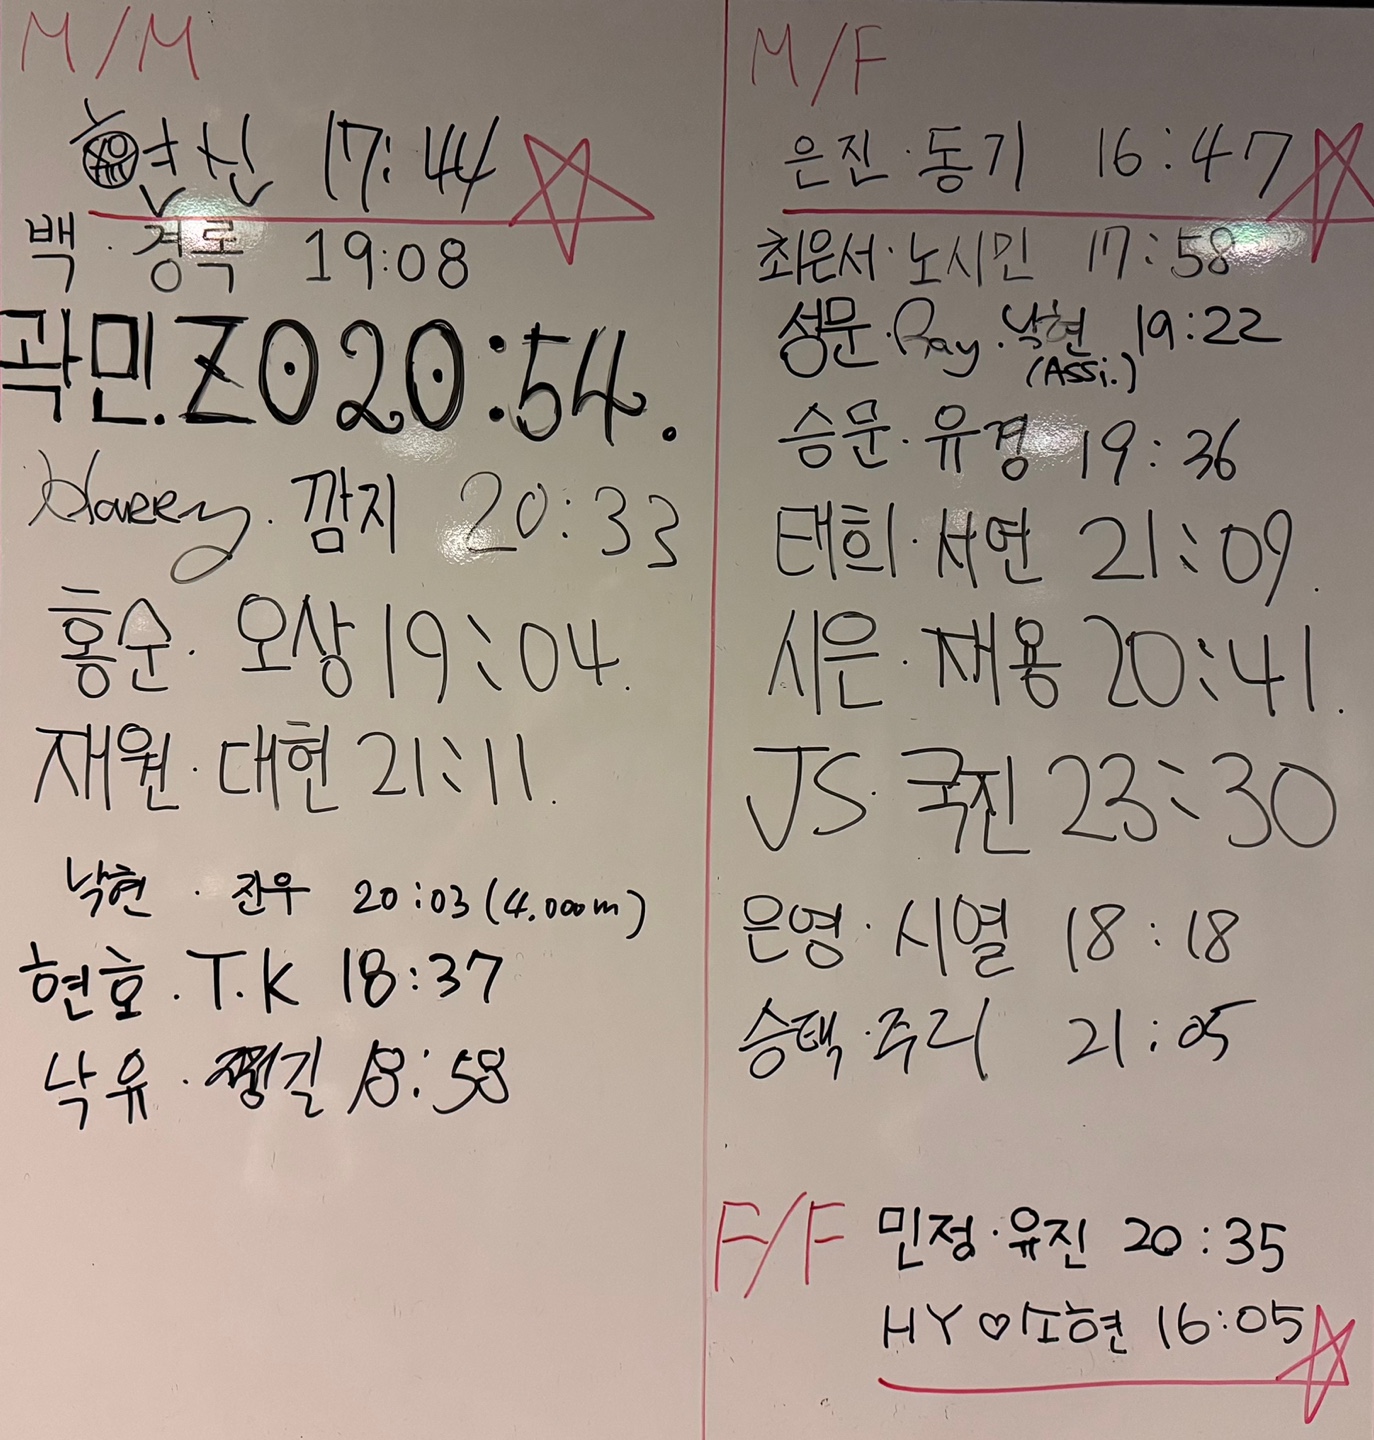 M/M
현신 17:44
백·경록 19:08
곽민.ZO 20:54.
Harry. 깜지 20:33
홍순. 오상 19:04.
재원. 대현 21:11.
낙현 · 잔우 20:03 (4.000m)
현호. T.K 18:37
낙유. 길 18:58
M/F
은진·동기 16:47
최은서·노시민 17:58
성문·Ray·낙현 19:22
(Assi.)
승문·유경 19:36
태희·서연 21:09.
시은. 재용 20:41.
JS· 국진 23:30
은영·시열 18:18
승택·주리 21:05
F/F
민정·유진 20:35
HY♡이소현 16:05